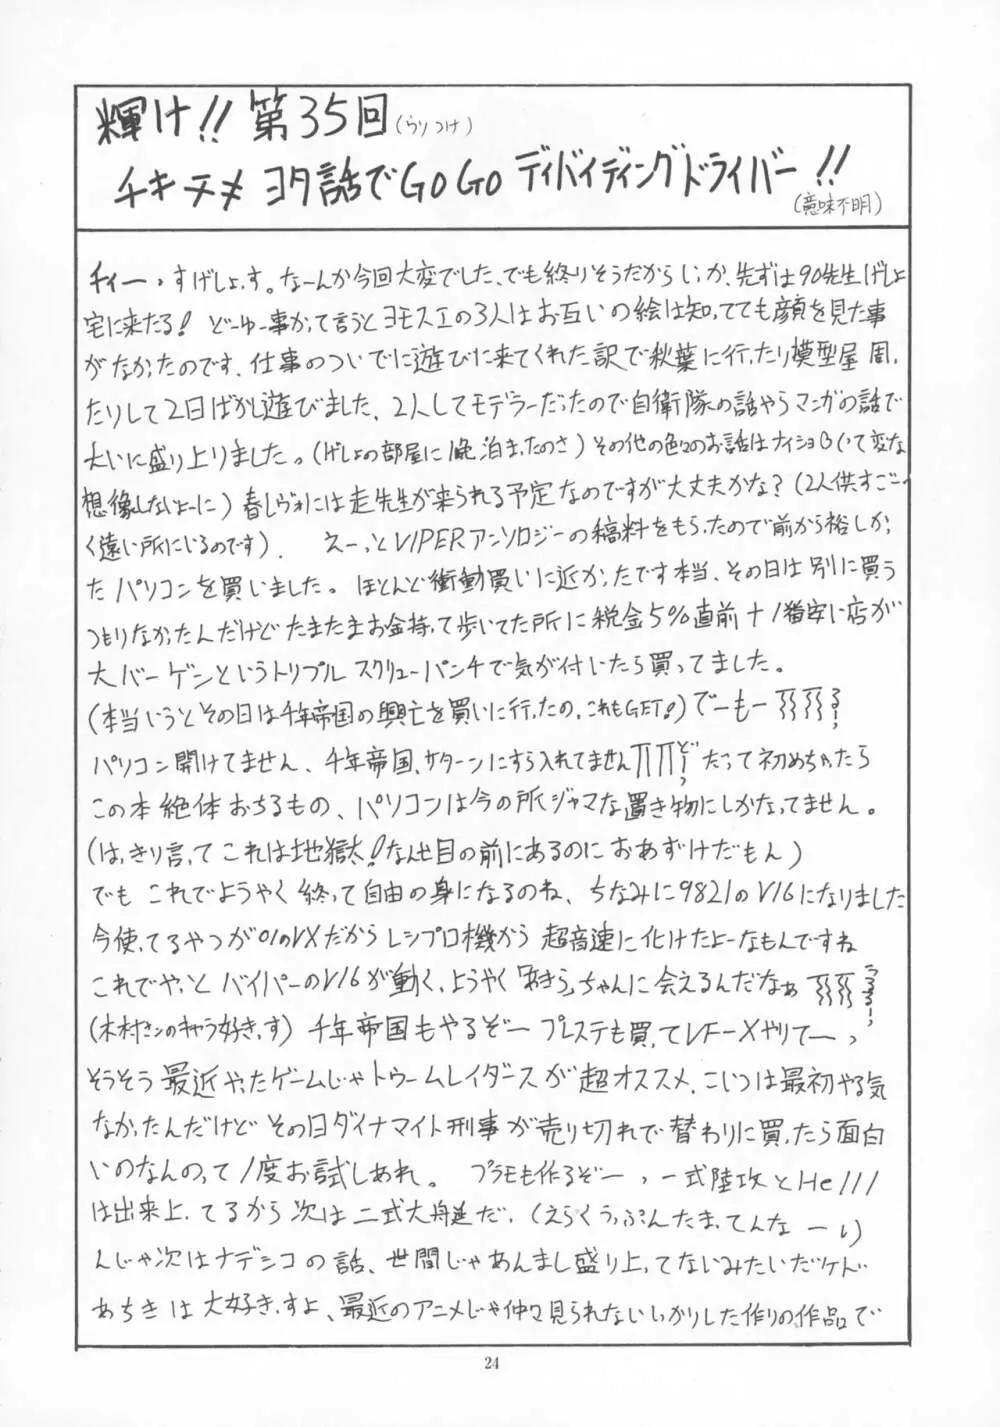 輝け!! 第35回(らりつけ)
チキチメ ヨタ話でGoGo ディバイディングドライバー!!
(意味不明)
チィーっすげしょっす。なーんか今回大変でした、でも終りそうだからいっか、先ずは90先生げしょ
宅に来たる! どーゆー事かって言うとヨモスエの3人はお互いの絵は知ってても顔を見た事
がなかったのです、仕事のついでに遊びに来てくれた訳で秋葉に行ったり模型屋周っ
たりして2日ばかし遊びました、2人してモデラーだったので自衛隊の話やらマンガの話で
大いに盛り上りました。(げしょの部屋に1晩泊まったのさ)その他の色々のお話はナイショ(って変な
想像しないよーに)春には走先生が来られる予定なのですが大丈夫かな?(2人供すごーっ
く遠い所にいるのです). えーっとVIPERアンソロジーの稿料をもらったので前から欲しかっ
たパソコンを買いました。ほとんど衝動買いに近かったです本当、その日は別に買う
つもりなかったんだけどたまたまお金持って歩いてた所に税金5%直前+1番安い店が
大バーゲンというトリプルスクリューパンチで気が付いたら買ってました。
(本当いうとその日は千年帝国の興亡を買いに行ったの,これもGET!)でーもー
パソコン開けてません、千年帝国、サターンにすら入れてません だって初めちゃったら
この本絶体おちるもの、パソコンは今の所ジャマな置き物にしかなってません。
(はっきり言ってこれは地獄だ!なんせ目の前にあるのにおあずけだもん)
でもこれでようやく終って自由の身になるのね、ちなみに9821のV16になりました
今使ってるやつが01のVXだからレシプロ機から超音速に化けたよーなもんですね
これでやっとバイパーのV16が動く、ようやく「あきら」ちゃんに会えるんだなぁ
(木村さンのキャラ好きっす)千年帝国もやるぞー プレステも買ってVF-Xやりてーっ
そうそう最近やったゲームじゃトゥームレイダースが超オススメ、こいつは最初やる気
なかったんだけどその日ダイナマイト刑事が売り切れで替わりに買ったら面白
いのなんのって1度お試しあれ。 プラモも作るぞーっ 一式陸攻とHe111
は出来上ってるから次は二式大艇だ,(えらくうっぷんたまってんなーい)
んじゃ次はナデシコの話、世間じゃあんまし盛り上ってないみたいだケド
あちきは大好きっすよ、最近のアニメじゃ仲々見られないしっかりした作りの作品で
24